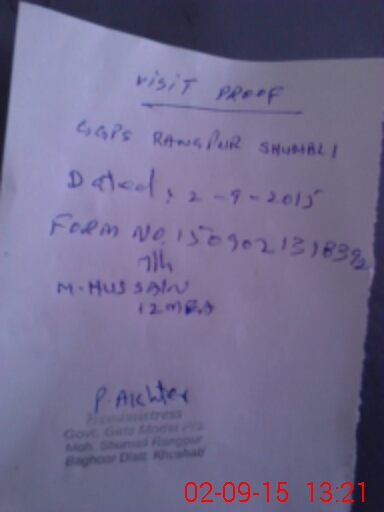 VISIT PROOF
GGPS RANGPUR SHUMALI
Dated: 2-9-2015
FORM NO. 1509021318392
M. HUSSAIN
P. Akhtar
Headmistress
Govt. Girls Model P/S
Moh. Shumali Rangpur
Baghoor Distt. Khushab
02-09-15 13:21